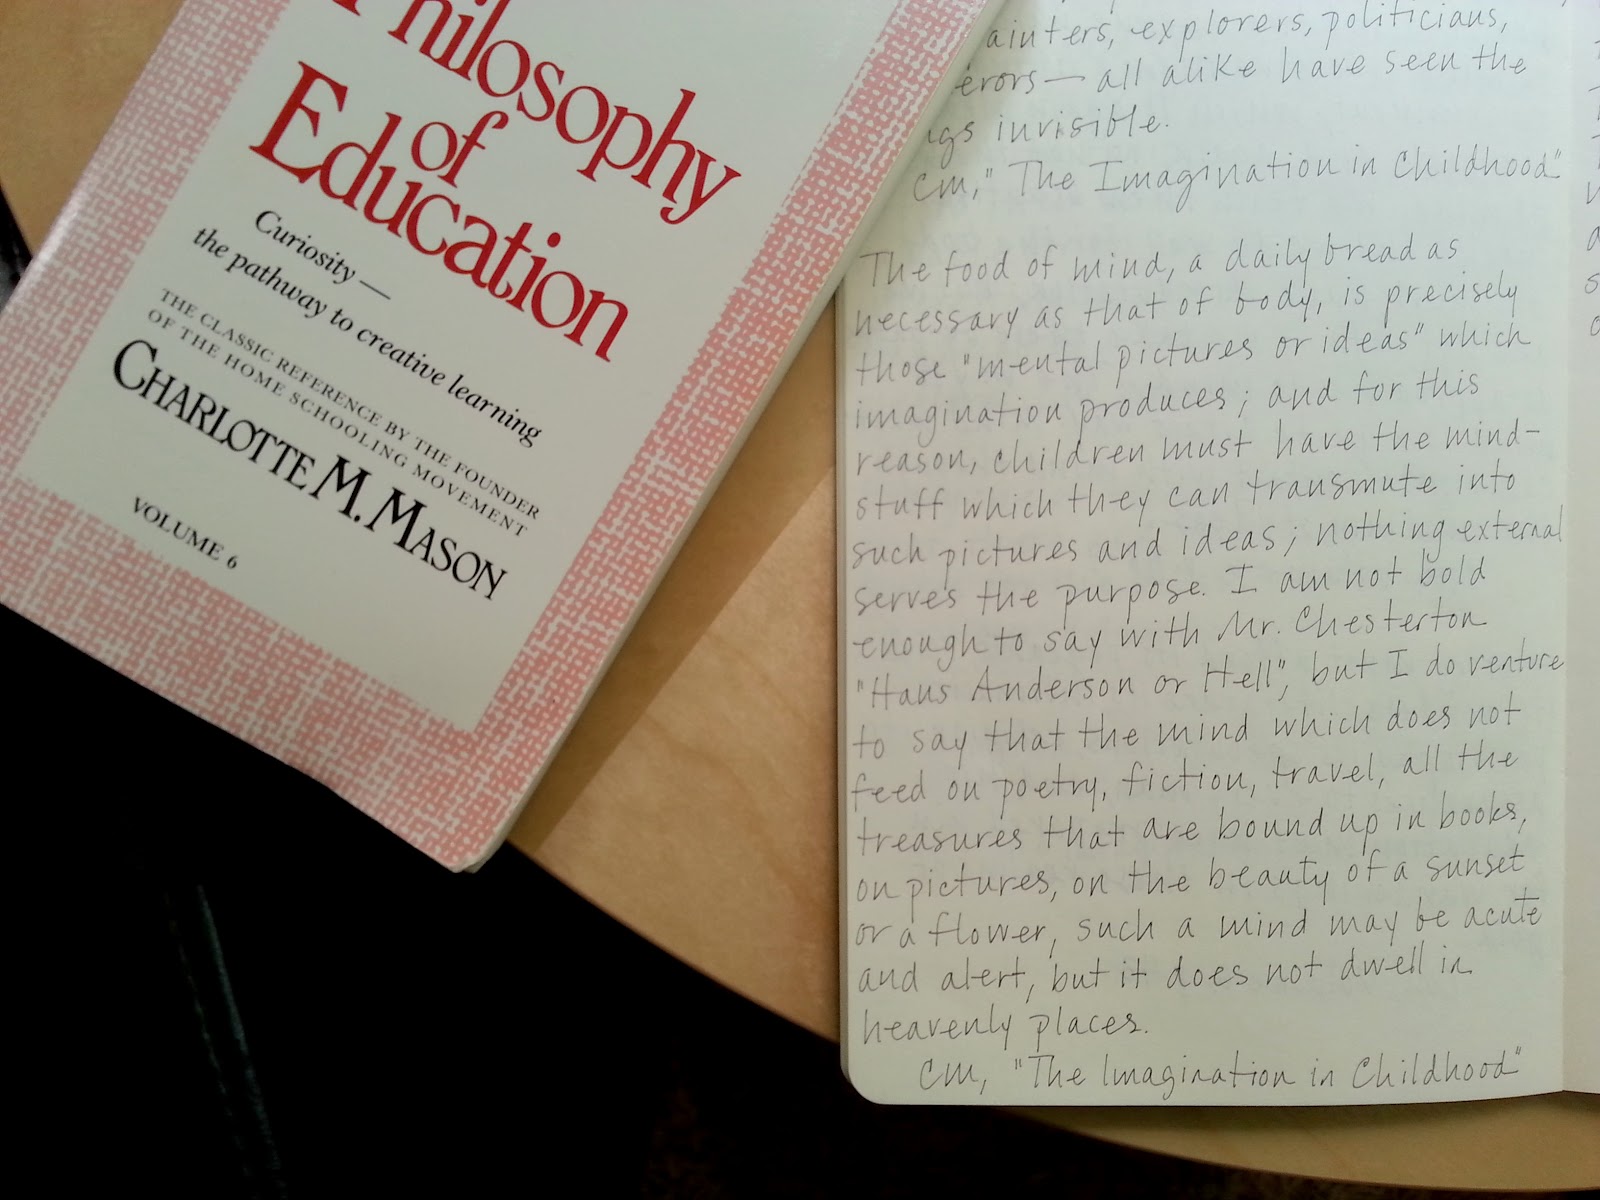 Philosophy
of
Education
Curiosity —
the pathway to creative learning
THE CLASSIC REFERENCE BY THE FOUNDER
OF THE HOME SCHOOLING MOVEMENT
CHARLOTTE M. MASON
VOLUME 6
explorers, politicians,
— all alike have seen the
invisible.
CM, "The Imagination in Childhood"
The food of mind, a daily bread as
necessary as that of body, is precisely
those "mental pictures or ideas" which
imagination produces; and for this
reason, children must have the mind-
stuff which they can transmute into
such pictures and ideas; nothing external
serves the purpose. I am not bold
enough to say with Mr. Chesterton
"Hans Anderson or Hell", but I do venture
to say that the mind which does not
feed on poetry, fiction, travel, all the
treasures that are bound up in books,
on pictures, on the beauty of a sunset
or a flower, such a mind may be acute
and alert, but it does not dwell in
heavenly places.
CM, "The Imagination in Childhood"